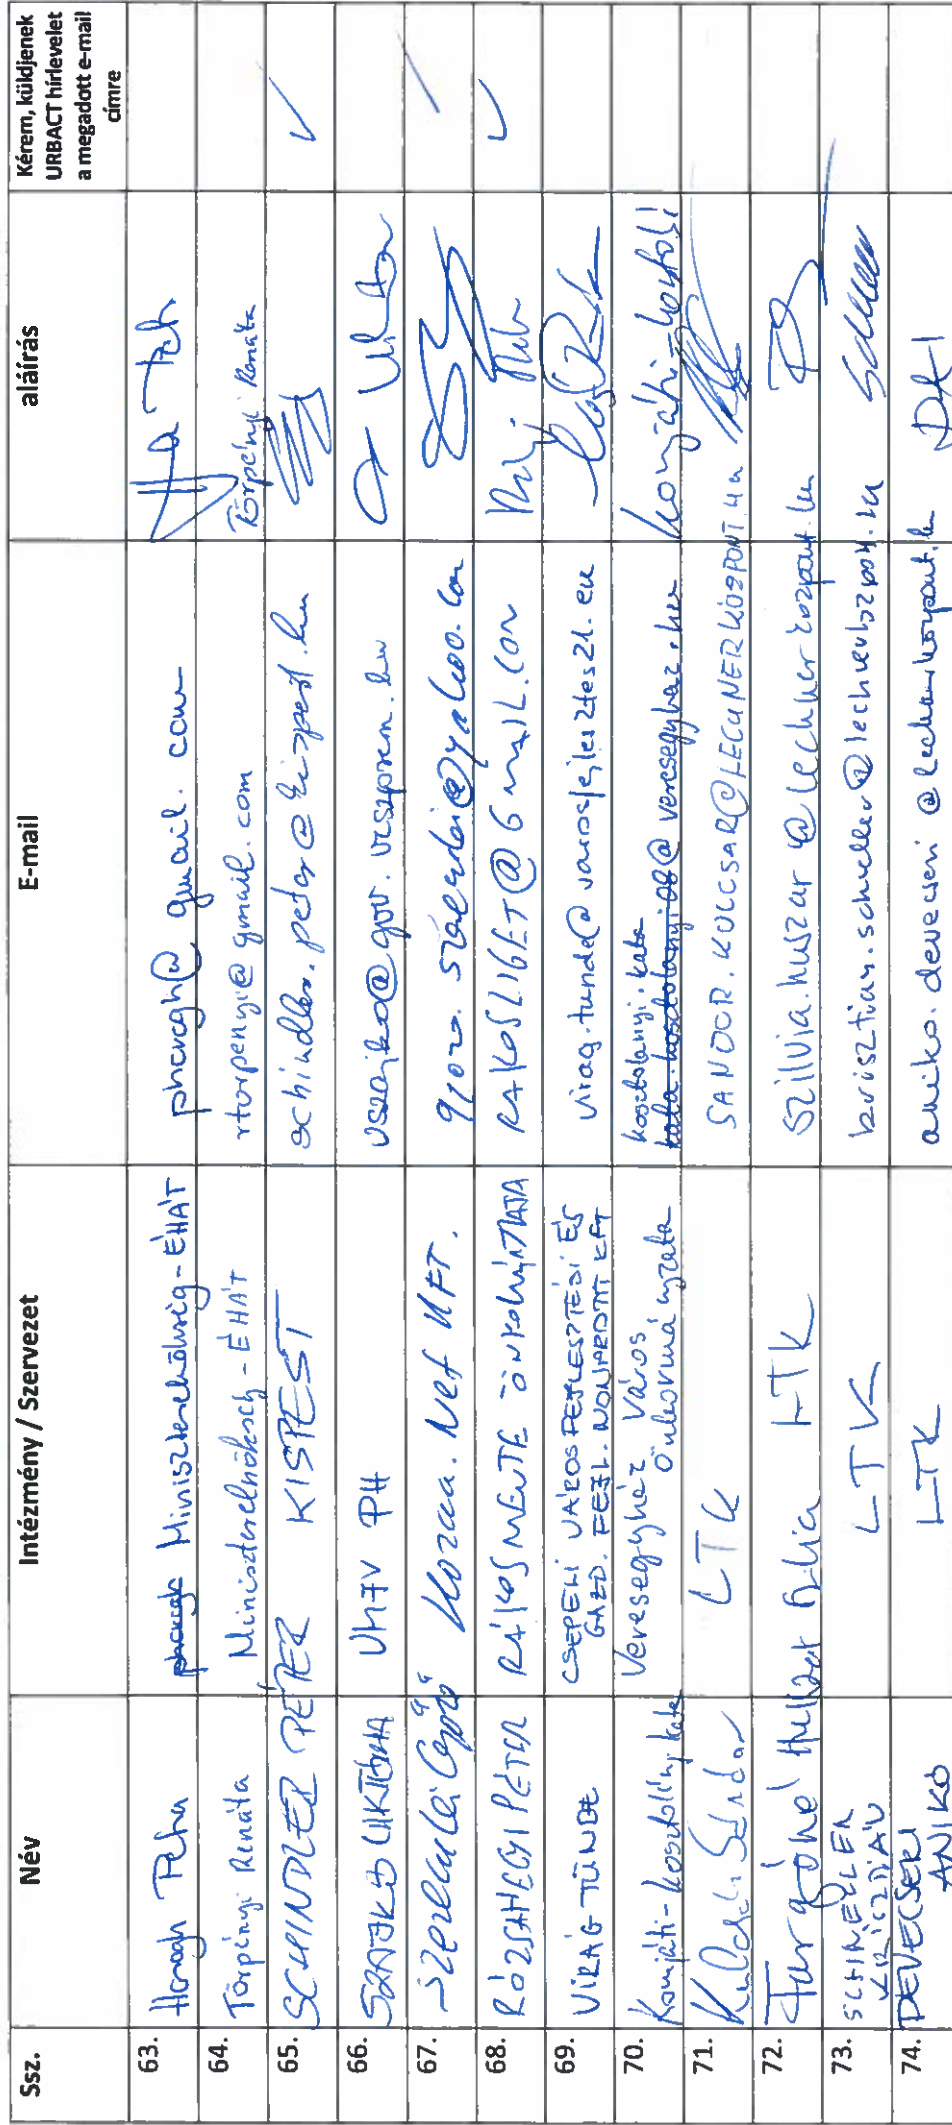 Ssz. Név Intézmény / Szervezet E-mail aláírás Kérem, küldjenek URBACT hírlevelet a megadott e-mail címre
63. Horogh Miniszterelnökség - ÉHÁT phorogh@gmail.com
64. Törpényi Renáta Miniszterelnökség - ÉHÁT rtorpenyi@gmail.com Törpényi Renáta
65. SCHINDLER PÉTER KISPEST schindler.peter@kispest.hu ✓
66. VMJV PH vszajko@gov.veszprem.hu
67. Kozma.Net KFT.
68. RÓZSAHEGYI PÉTER RÁKOSMENTE ÖNKORMÁNYZATA RAKOSLIGET@GMAIL.COM ✓
69. VIRÁG TÜNDE CSEPELI VÁROSFEJLESZTÉSI ÉS
GAZD. FEJL. NONPROFIT KFT virag.tunde@varosfejlesztes21.eu
70. Komjáti-Kosztolányi Kata Veresegyház Város
Önkormányzata kosztolanyi.kata
@veresegyhaz.hu
71. Kulcsár Sándor LTK SANDOR.KULCSAR@LECHNERKOZPONT.HU
72. Huszár Szilvia LTK Szilvia.huszar@lechnerkozpont.hu
73. SCHNELLER
KRISZTIÁN LTK krisztian.schneller@lechnerkozpont.hu
74. DEVECSERI
ANIKÓ LTK aniko.devecseri@lechnerkozpont.hu